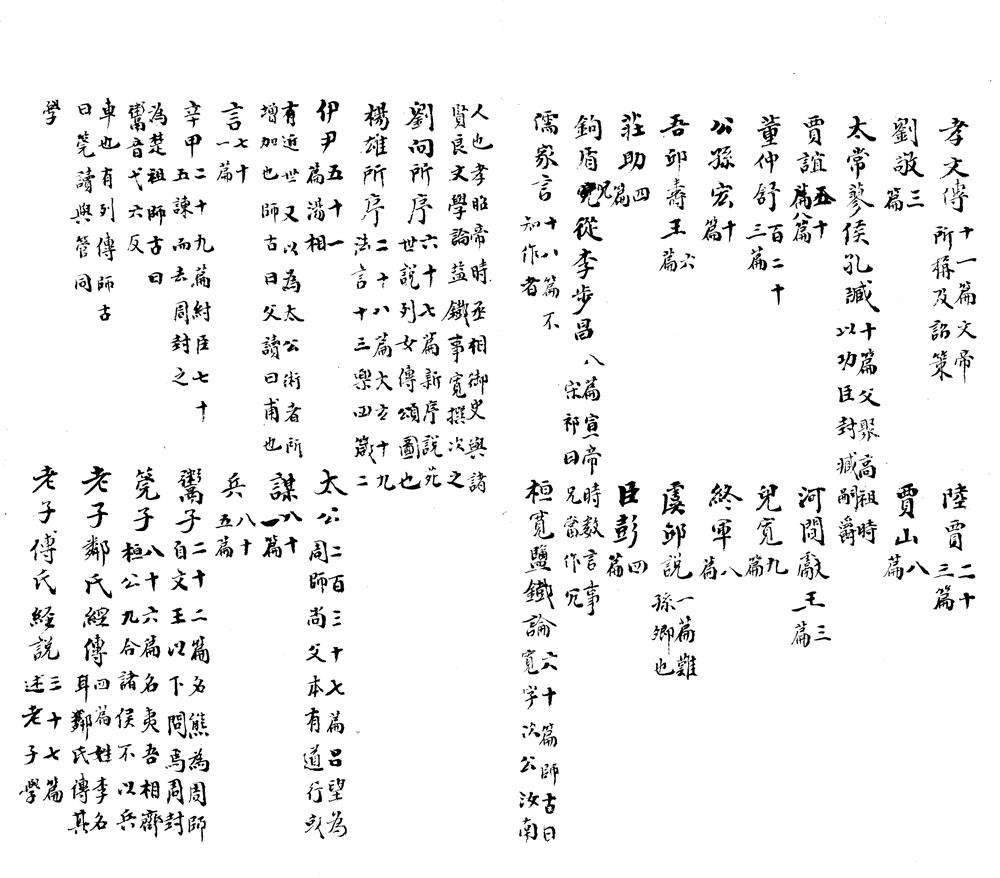 孝文傳 十一篇文帝所稱及詔策 陸賈 二十三篇
劉敬 三篇 賈山 八篇
太常蓼侯孔臧 十篇父聚高祖時以功臣封臧嗣爵
賈誼 五十八篇 河間獻王 三篇
董仲舒 百二十三篇 兒寬 九篇
公孫宏 十篇 終軍 八篇
吾邱壽王 六篇 虞邱説 一篇難孫卿也
莊助 四篇 臣彭 四篇
鉤盾兄從李步昌 八篇宣帝時数言事宋祁曰兄當作冗
儒家言 十八篇不知作者 桓寬鹽鐵論 六十篇師古曰寬字次公汝南
人也孝昭帝時丞相御史與諸賢良文學論益鐵事寬撰次之
劉向所序 六十七篇新序説苑世説列女傳頌圖也
楊雄所序 二十八篇大玄十九法言十三樂四箴二
伊尹 五十一篇湯相 太公 二百三十七篇吕望為周師尚父本有道行或
有近世又以為太公術者所增加也師古曰父讀曰甫也 謀 八十一篇
言 七十一篇 兵 八十五篇
辛甲 二十九篇紂臣七十五諫而去周封之 鬻子 二十二篇名熊為周師自文王以下問焉周封
為楚祖師古曰鬻音弋六反 筦子 八十六篇名夷吾相齊桓公九合諸侯不以兵
車也有列傳師古曰筦讀與管同 老子鄰氏經傳 四篇姓李名耳鄰氏傳其
學 老子傅氏経説 三十七篇述老子學